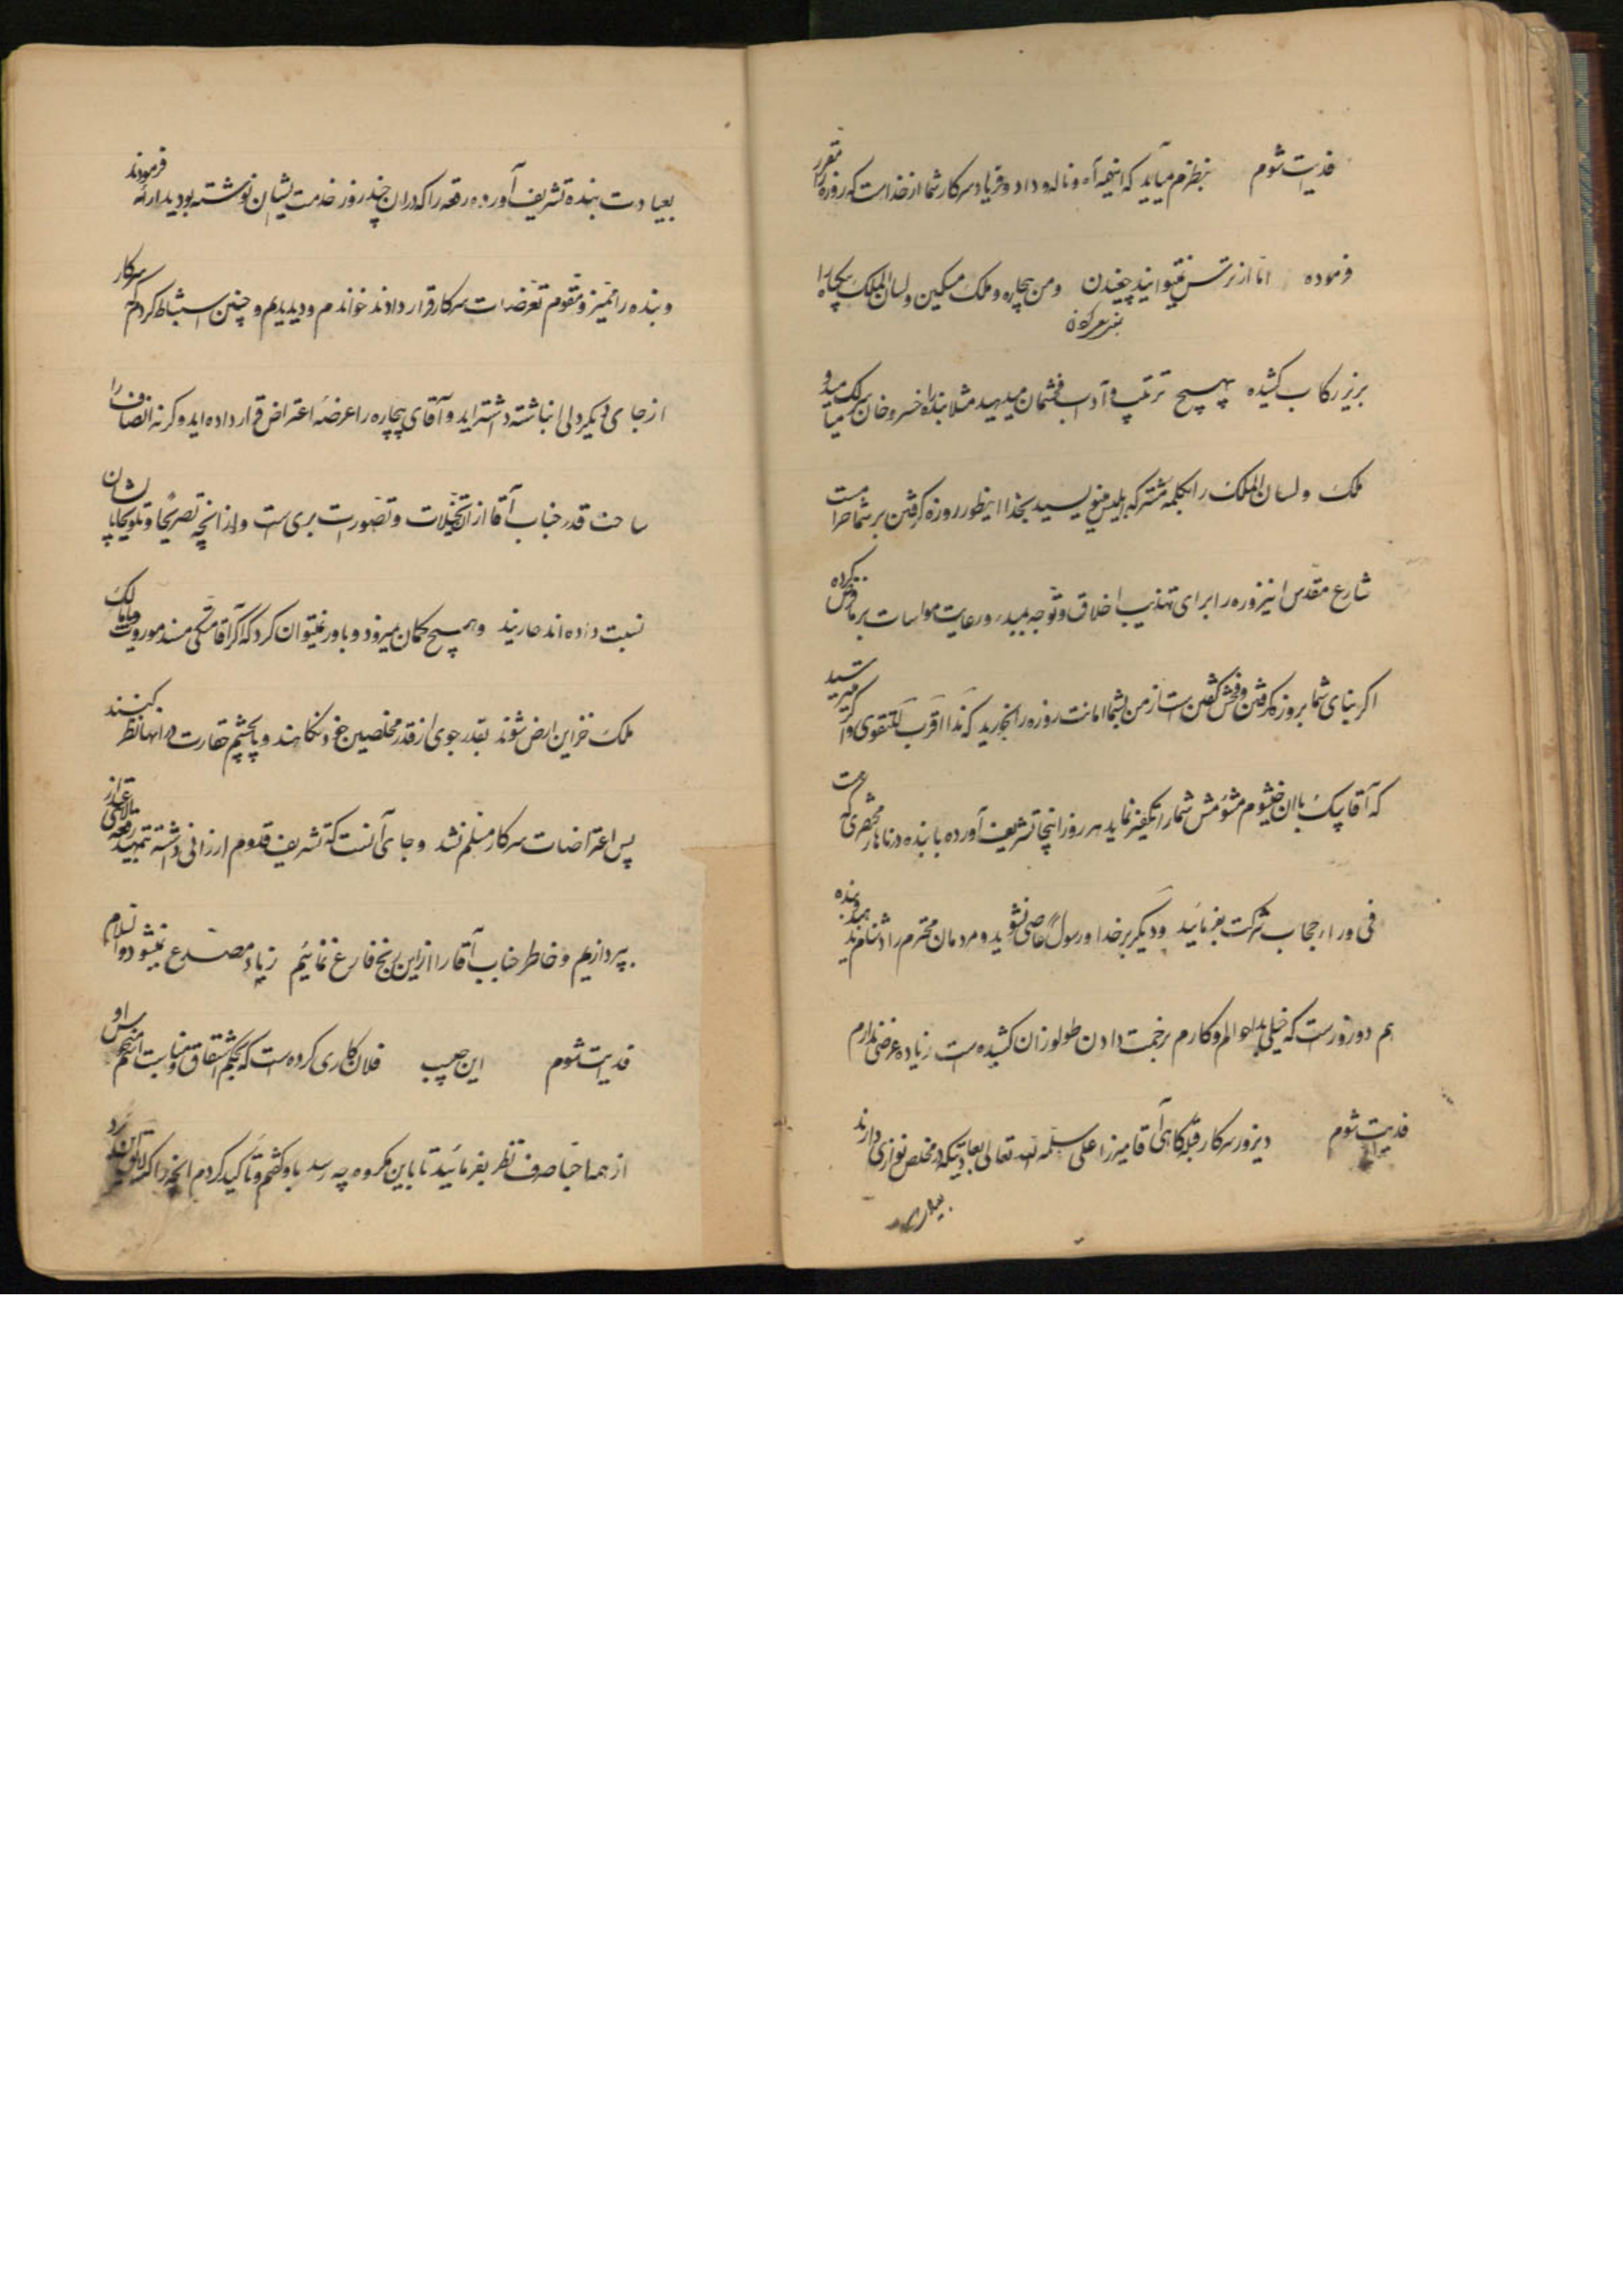 فدیت شوم بنظرم میآید که اینهمه آه و ناله و داد و فریاد سرکار شما از خداست که روزه را مقرر
فرموده اما از ترس نمیتوانید چغیدن و من بیچاره و ملک مسکین و لسان الملک بیچاره را
بزیر رکاب کشیده بهیچ ترتیب و آداب فحشمان میدهید مثلا بنده را خسرو خان
ملک و لسان الملک را بکلمه مشترکه ابلیس مینویسید بخدا اینطور روزه گرفتن بر شما حرام است
شارع مقدس این روزه را برای تهذیب اخلاق و توجه بمبدء و رعایت مواسات بر ما فرض کرده
اگر بنای شما بروزه گرفتن و فحش گفتن است از من بشما امانت روزه را بخورید که هذا اقرب للتقوی و اگر میترسید
که آقا بیک با آن خیشوم مشومش شما را تکفیر نماید هر روز اینجا تشریف آورده با بنده در ناهار مختصری که
فی وراء حجاب شرکت بفرمائید و دیگر بر خدا و رسول عاصی نشوید و مردمان محترم را دشنام ندهید بنده
هم دو روز است که خیلی بد احوالم و کارم بزحمت دادن طولوزان کشیده است زیاده عرضی ندارم
فدیت شوم دیروز سرکار قبله گاهی آقا میرزا علی سلمه الله تعالی بعادتیکه در مخلص نوازی دارند
بعیادت بنده تشریف آورده رقعه را که در آن چند روز خدمت ایشان نوشته بودید ارائه فرمودند
و بنده را ممیز و مقوم تعرضات سرکار قرار دادند خواندم و دیدیم و چنین استنباط کردم سرکار
از جای دیگر دلی انباشته داشته اید و آقای بیچاره را عرضه اعتراض قرار داده اید و گرنه انصاف را
ساحت قدر جناب آقا از آن تخیلات و تصورت بری است و از آنچه تصریحا و تلویحا بایشان
نسبت داده اند عارند و هیچ گمان میرود و باور نمیتوان کرد که اگر آقا متکی مسند موروث و مالک
ملک خزاین ارض شوند بقدر جوی از قدر مخلصین خود نکاهند و بچشم حقارت در آنها نظر کنند
پس اعتراضات سرکار مسلم نشد و جای آنست که تشریف قدوم ارزانی داشته بتمهید
بپردازیم و خاطر جناب آقا را از این رنج فارغ نمائیم زیاد مصدع نمیشود والسلام
فدیت شوم این حبیب فلان کاری کرده است که بحکم اشتقاق و مناسبت اسم او
از همه اجبا صرف نظر بفرمائید تا باین مکروه چه رسد باو گفتم و تاکید کردم